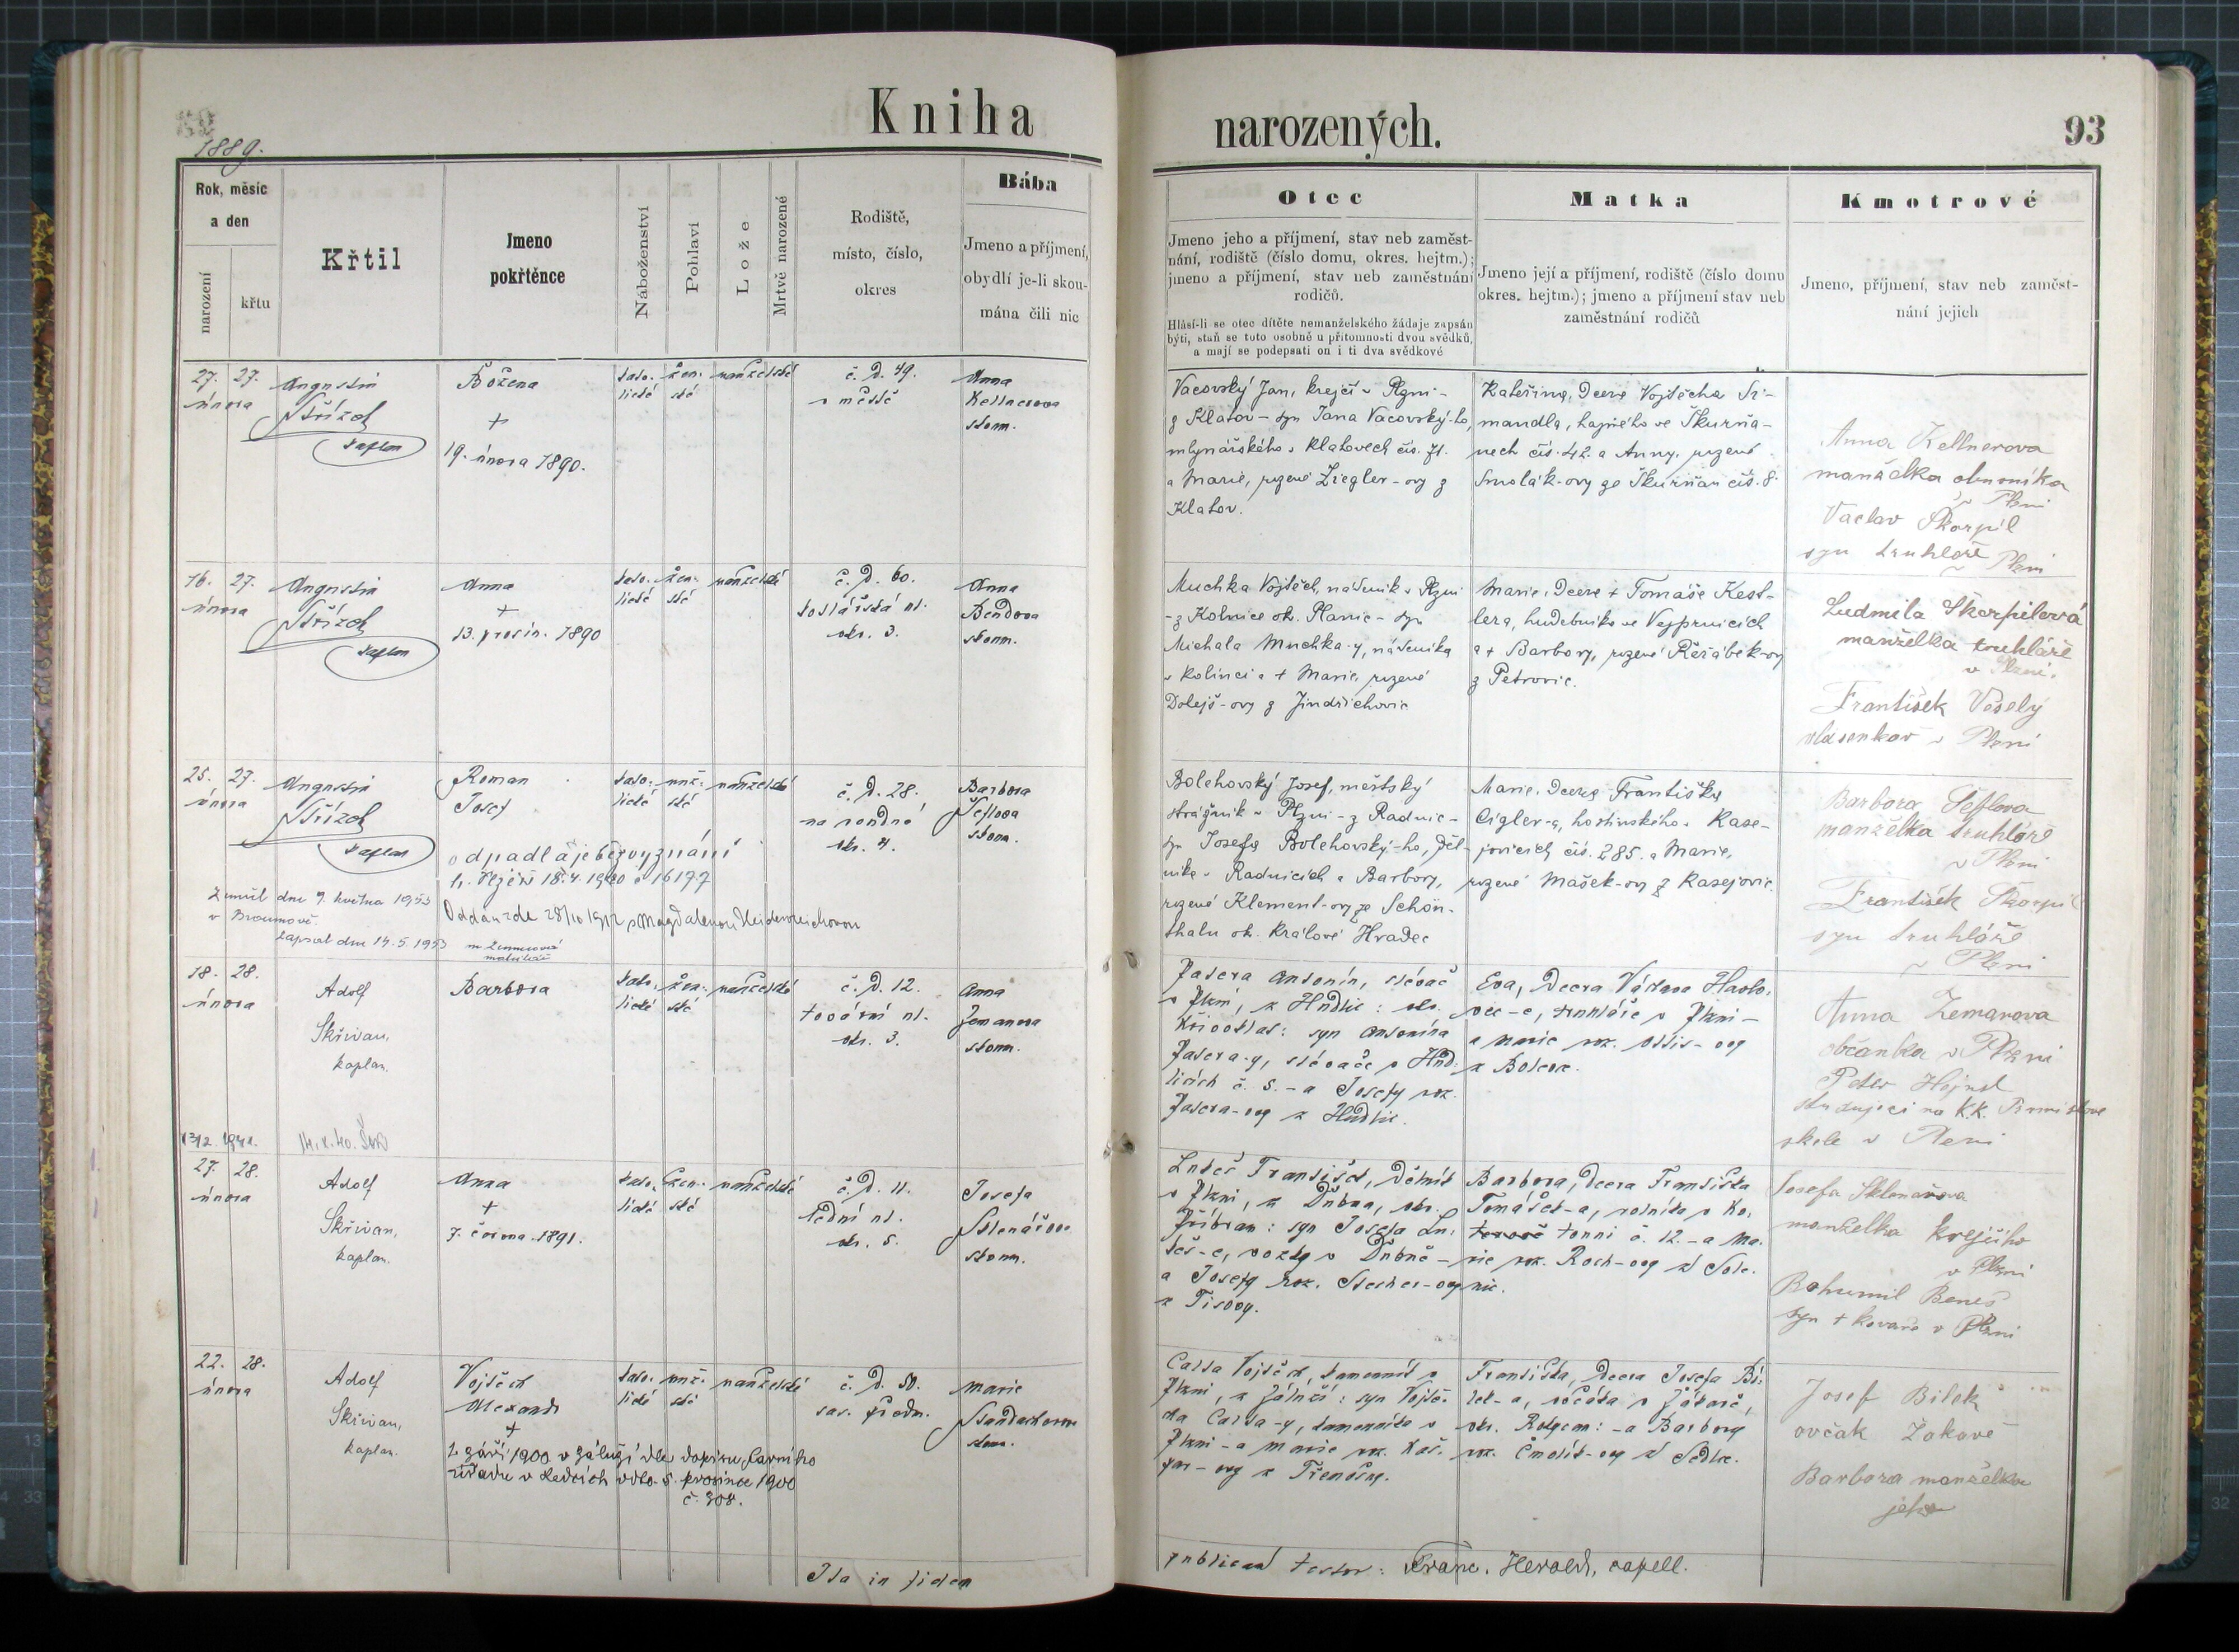 Kniha
narozených.
93
1889.
Rok, měsíc
a den
narození
křtu
Křtil
Jmeno
pokřtěnce
Náboženství
Pohlaví
Lože
Mrtvě narozené
Rodiště,
místo, číslo,
okres
Bába
Jmeno a příjmení,
obydlí je-li skou-
mána čili nic
Otec
Jmeno jeho a příjmení, stav neb zaměst-
nání, rodiště (číslo domu, okres. hejtm.);
jmeno a příjmení, stav neb zaměstnání
rodičů.
Hlásí-li se otec dítěte nemanželského žádaje zapsán
býti, staň se toto osobně u přítomnosti dvou svědků,
a mají se podepsati on i ti dva svědkové
Matka
Jmeno její a příjmení, rodiště (číslo domu
okres. hejtm.); jmeno a příjmení stav neb
zaměstnání rodičů
Kmotrové
Jmeno, příjmení, stav neb zaměst-
nání jejich
27. 27.
února
Augustin
Střízek
kaplan
Božena
+
19. února 1890.
kato- žen- manželské
lické ské
č. d. 49.
v městě
Anna
Kellnerova
zkoum.
Vacovský Jan, krejčí v Plzni -
z Klatov - syn Jana Vacovský-ho,
mlynářského v Klatovech čís. 71.
a Marie, rozené Ziegler-ovy z
Klatov.
Kateřina, dcera Vojtěcha Si-
mandla, hajného ve Škurňa-
nech čís. 42. a Anny, rozené
Smolák-ovy ze Škurňan čís. 8.
Anna Kellnerova
manželka
v Plzni
Vaclav Škorpil
syn truhláře
v Plzni
16. 27.
února
Augustin
Střízek
kaplan
Anna
+
13. prosin. 1890
kato- žen- manželské
lické ské
č. d. 60.
koslářská ul.
okr. 3.
Anna
Bendova
zkoum.
Muchka Vojtěch, nádeník v Plzni
- z Kolince ok. Planic - syn
Michala Muchka-y, nádeníka
v Kolinci a + Marie, rozené
Dolejš-ovy z Jindřichovic
Marie, dcera + Tomáše Kest-
lera, hudebníka ve Vejprnicích
a + Barbory, rozené Řeřábek-ovy
z Petrovic.
Ludmila Škorpilová
manželka truhláře
v Plzni.
František Veselý
vlásenkář v Plzni
25. 27.
února
Augustin
Střízek
kaplan
Roman
Josef
odpadl a je bez vyznání
Oddán zde 28/10 1912 s Magdalenou Heidenreichovou
Zemřel dne 7. května 1953
v Broumově.
Zapsal dne 14.5.1953
kato- muž- manželské
lické ské
č. d. 28.
na rondné
okr. 4.
Barbora
Šeflova
zkoum.
Bolehovský Josef, městský
strážník v Plzni - z Radnic -
syn Josefa Bolehovský-ho, děl-
níka v Radnicích a Barbory,
rozené Klement-ovy ze Schön-
thalu ok. Králové Hradec
Marie, dcera Františka
Cigler-a, hostinského v Kase-
jovicích čís. 285. a Marie,
rozené Mašek-ovy z Kasejovic.
Barbora Šeflova
manželka truhláře
v Plzni
František Škorpil
syn truhláře
v Plzni
18. 28.
února
Adolf
Skřivan,
kaplan.
Barbora
kato- žen- manželské
lické ské
č. d. 12.
tovární ul.
okr. 3.
Anna
Zemanova
zkoum.
Pasera Antonín, slévač
v Plzni, z Hudlic: okr.
Křivoklat: syn Antonína
Pasera-y, slévače v Hud-
licích č. 5. - a Josefy roz.
Pasera-ovy z Hudlic.
Eva, dcera Václava Havlo-
vec-e, truhláře v Plzni -
a Marie roz. -ovy
z Bolevce.
Anna Zemanova
občanka v Plzni
Petr
studující na K.K.
škole v Plzni
27. 28.
února
Adolf
Skřivan,
kaplan.
Anna
+
7. června 1891.
kato- žen- manželské
lické ské
č. d. 11.
okr. 5.
Josefa
Sklenářova
zkoum.
Lukeš František, dělník
v Plzni, z Dubna, okr.
Příbram: syn Josefa Lu-
keš-e, vozky v Dubně -
a Josefy roz. Stecher-ovy
z Tisovy.
Barbora, dcera Františka
Tomášek-a, rolníka v Ko-
č. 12. - a Ma-
rie roz. Roch-ovy
Josefa Sklenářova
manželka krejčího
v Plzni
Bohumil Beneš
syn + kovaře v Plzni
22. 28.
února
Adolf
Skřivan,
kaplan.
Vojtěch
Alexandr
+
2. září 1900 v Zálužší dle dopisu farního
úřadu v Ledcích ddto. 5. prosince 1900
č. 308.
kato- muž- manželské
lické ské
č. d. 50.
sas. předm.
Marie
Standarkova
zkoum.
Calta Vojtěch, kameník v
Plzni, z Záluží: syn Vojtě-
cha Calta-y, kameníka v
Plzni - a Marie roz. Kaš-
par-ovy z Třemošny.
Františka, dcera Josefa Bí-
lek-a, ovčáka v Žákavě,
okr. Rokycan: - a Barbory
roz. Čmolík-ovy z Sedlce.
Josef Bilek
ovčák Žakavě
Barbora manželka
jeho
Ita in fidem
publicam testor: Franc. Herold, capell.